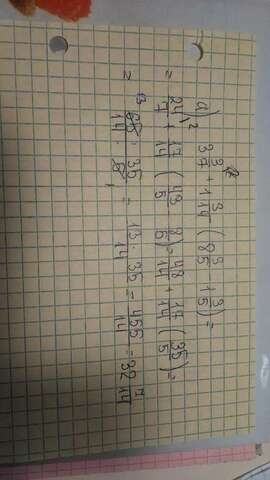 a) 3 3/7 + 1 3/14 (8 3/5 1 3/5) =
= 24/7 \2 + 17/14 (43/5 8/5) = 48/14 + 17/14 (35/5) =
= 13 65/14 · 35/5 1 = 13/14 · 35 = 455/14 = 32 7/14